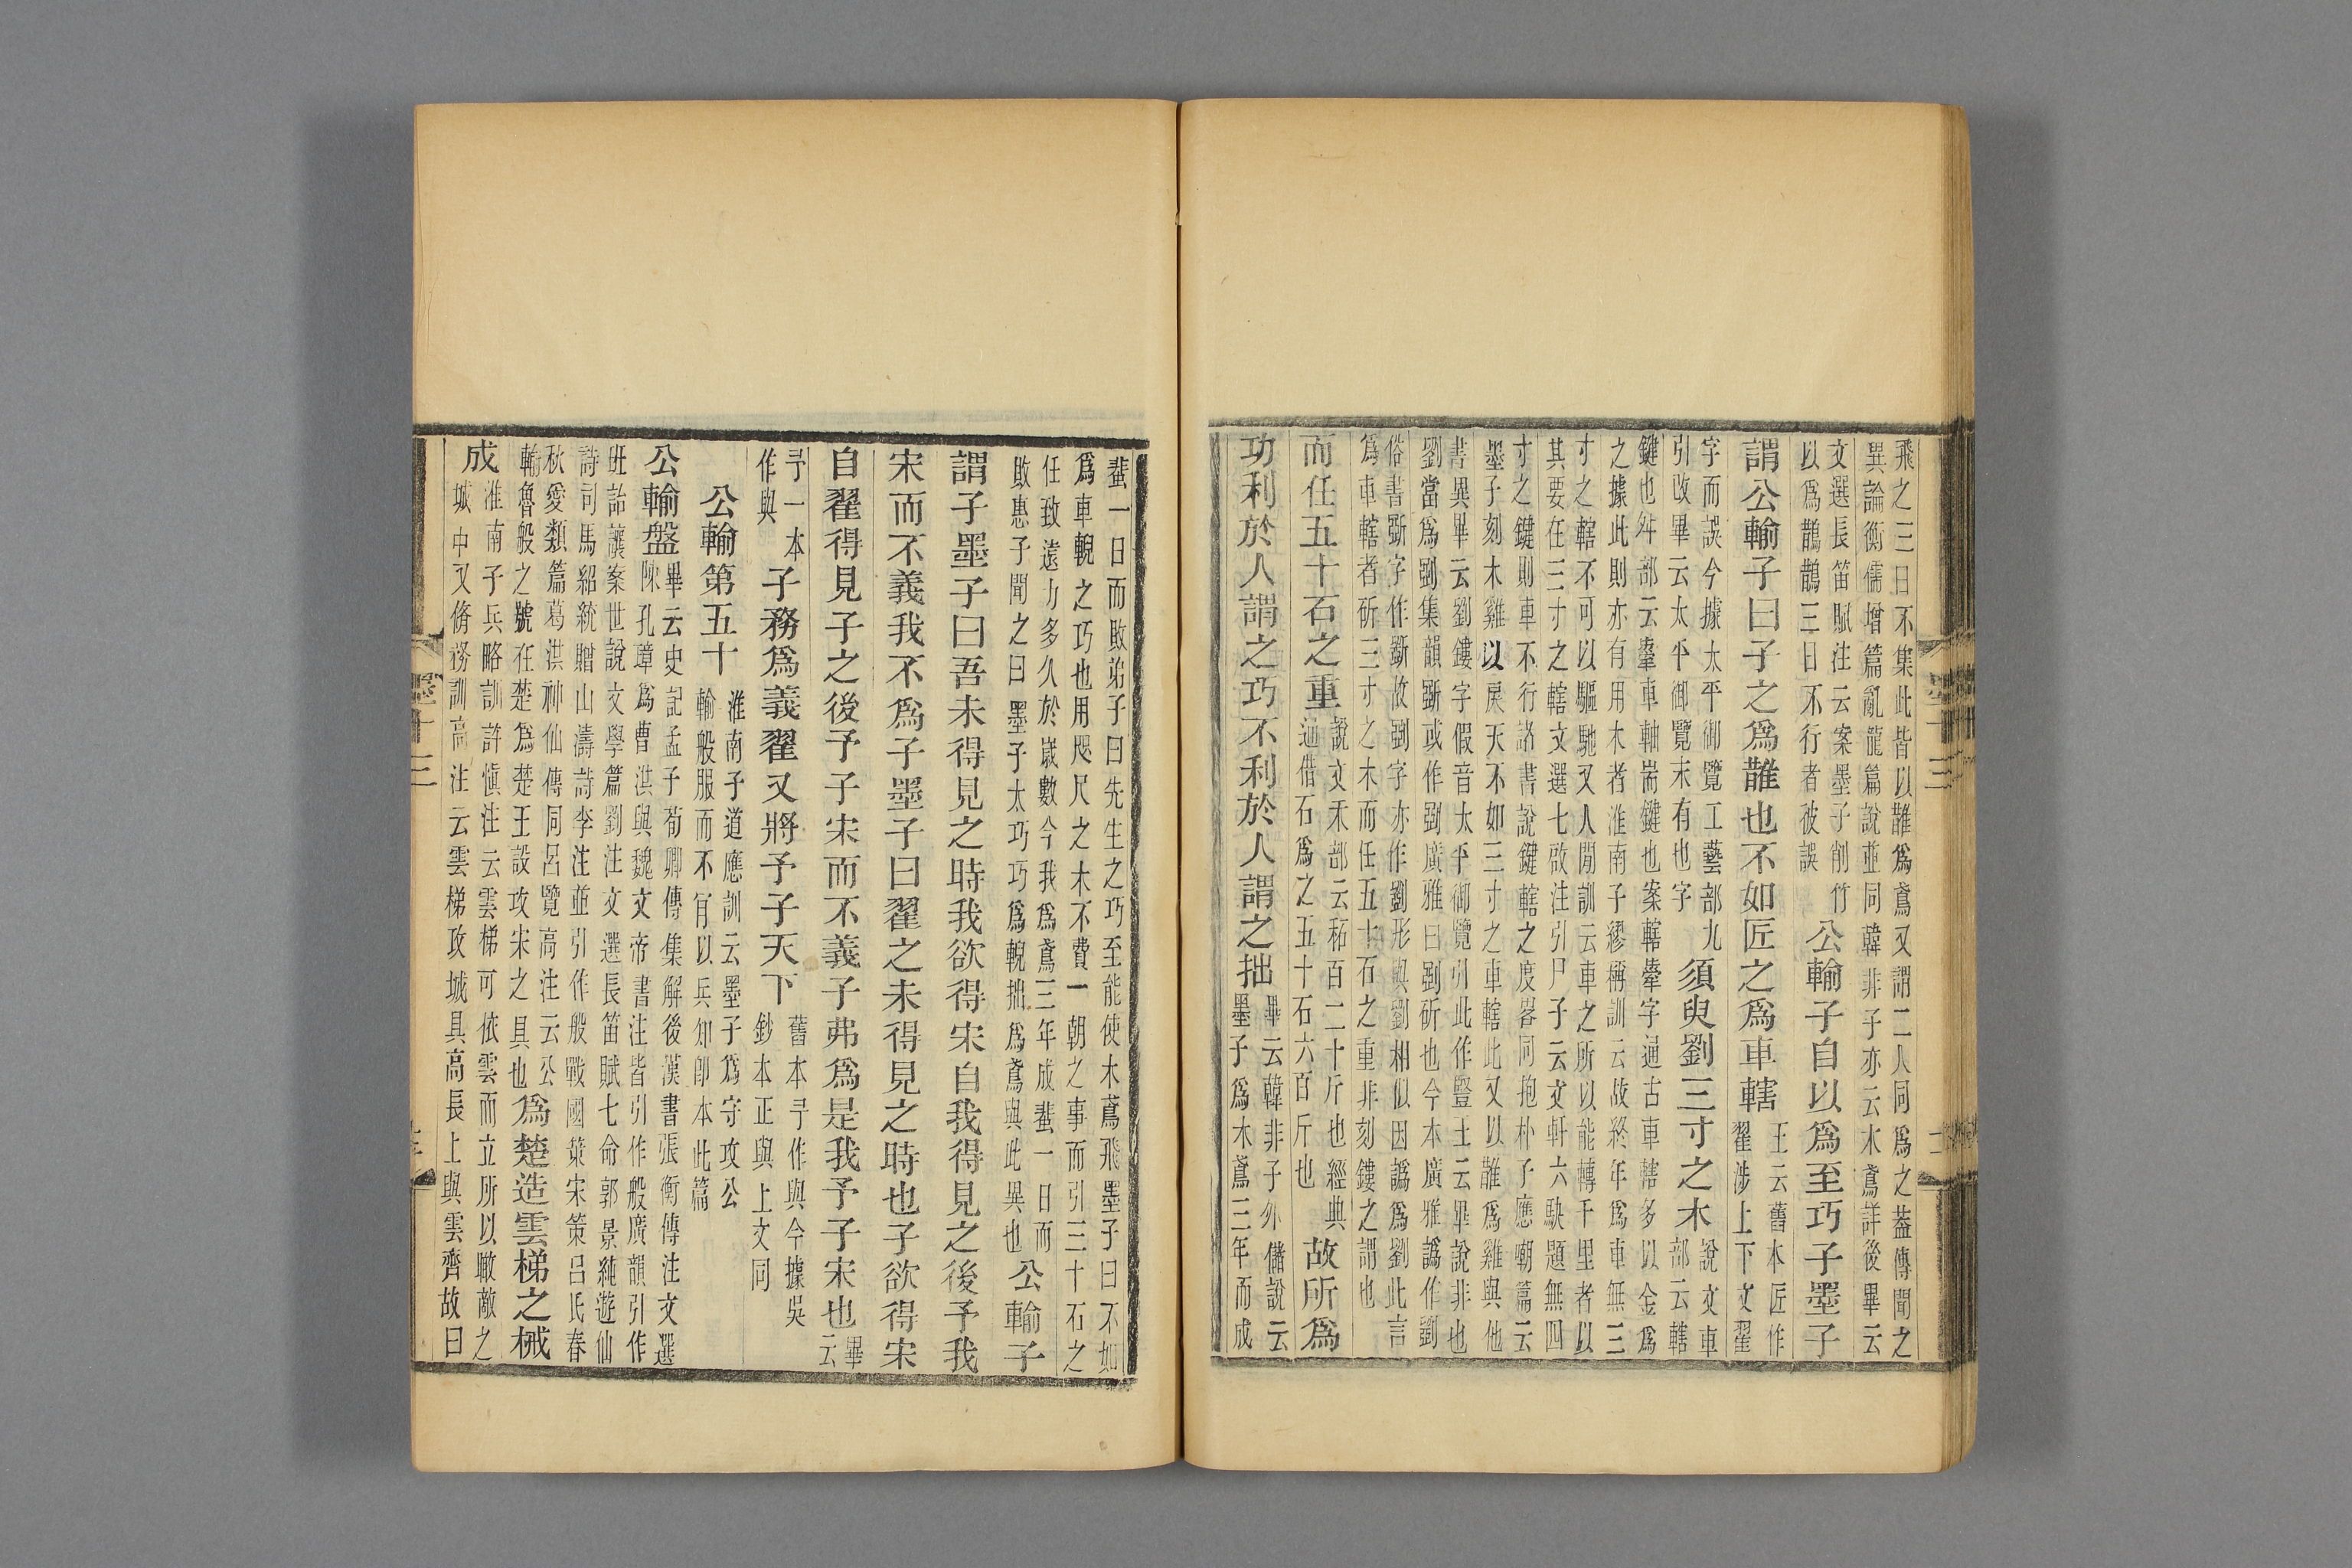 飛之三日不集此皆以䧿爲鳶又謂二人同爲之葢傳聞之
異論衡儒增篇亂龍篇說並同韓非子亦云木鳶詳後畢云
文選長笛賦注云案墨子削竹
以爲鵲鵲三日不行者彼誤
公輸子自以爲至巧子墨子
謂公輸子曰子之爲䧿也不如匠之爲車轄
王云舊本匠作
翟涉上下文翟
字而誤今據太平御覽工藝部九
引改畢云太平御覽末有也字
須臾劉三寸之木
說文車
部云轄
鍵也舛部云舝車軸耑鍵也案轄舝字通古車轄多以金爲
之據此則亦有用木者淮南子繆稱訓云故終年爲車無三
寸之轄不可以驅馳又人閒訓云車之所以能轉千里者以
其要在三寸之轄文選七啟注引尸子云文軒六駃題無四
寸之鍵則車不行諸書說鍵轄之度畧同抱朴子應嘲篇云
墨子刻木雞以戾天不如三寸之車轄此又以䧿爲雞與他
書異畢云劉鏤字假音太平御覽引此作豎王云畢說非也
劉當爲㓸集韻斲或作㓸廣雅曰㓸斫也今本廣雅譌作劉
俗書斲字作斵故㓸字亦作劉形與劉相似因譌爲劉此言
爲車轄者斫三寸之木而任五十石之重非刻鏤之謂也
而任五十石之重
說文禾部云䄷百二十斤也經典
通借石爲之五十石六百斤也
故所爲
功利於人謂之巧不利於人謂之拙
畢云韓非子外儲說云
墨子爲木鳶三年而成
蜚一日而敗弟子曰先生之巧至能使木鳶飛墨子曰不如
爲車輗之巧也用咫尺之木不費一朝之事而引三十石之
任致遠力多久於歲數今我爲鳶三年成蜚一日而
敗惠子聞之曰墨子太巧巧爲輗拙爲鳶與此異也
公輸子
謂子墨子曰吾未得見之時我欲得宋自我得見之後予我
宋而不義我不爲子墨子曰翟之未得見之時也子欲得宋
自翟得見子之後予子宋而不義子弗爲是我予子宋也
畢云
予一本
作與
子務爲義翟又將予子天下
舊本予作與今據吳
鈔本正與上文同
公輸第五十
淮南子道應訓云墨子爲守攻公
輸般服而不肎以兵知卽本此篇
公輸盤
畢云史記孟子荀卿傳集解後漢書張衡傳注文選
陳孔璋爲曹洪與魏文帝書注皆引作般廣韻引作
班詒讓案世說文學篇劉注文選長笛賦七命郭景純遊仙
詩司馬紹統贈山濤詩李注並引作般戰國策宋策呂氏春
秋愛類篇葛洪神仙傳同呂覽高注云公
輸魯般之號在楚爲楚王設攻宋之具也
爲楚造雲梯之械
成
淮南子兵略訓許愼注云雲梯可依雲而立所以瞰敵之
城中又脩務訓高注云雲梯攻城具高長上與雲齊故曰
墨十三
墨十三